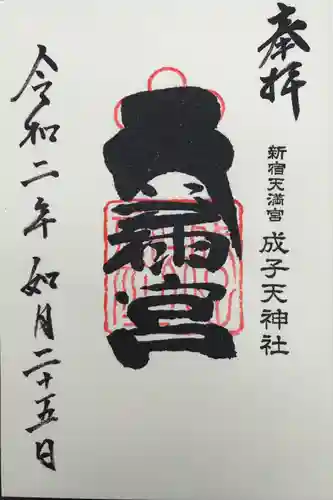 奉拝
新宿天満宮
成子天神社
天満宮
令和二年如月二十五日